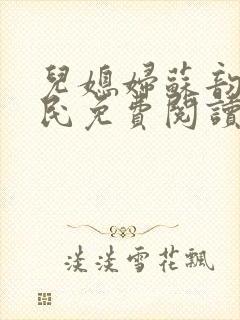 兒媳婦蘇韵
民免費閱讀
淡淡雪花飄